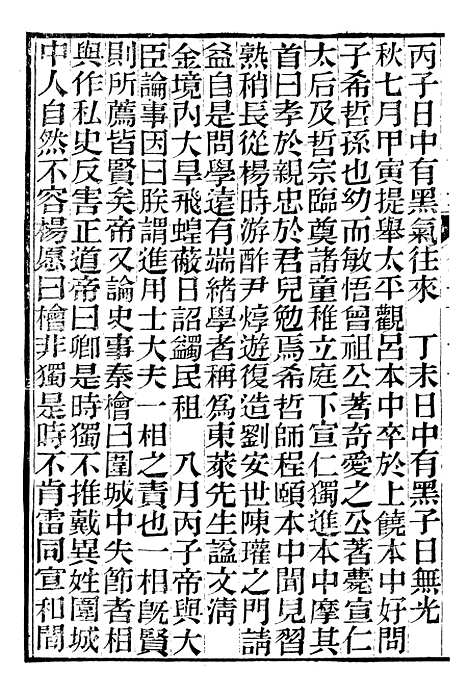 丙子日中有黑氣往來　丁未日中有黑子日無光
秋七月甲寅提舉太平觀呂本中卒於上饒本中好問
子希哲孫也幼而敏悟曾祖公著奇愛之公著薨宣仁
太后及哲宗臨奠諸童稚立庭下宣仁獨進本中摩其
首曰孝於親忠於君兒勉焉希哲師程頤本中聞見習
熟稍長從楊時游酢尹焞遊復造劉安世陳瓘之門請
益自是問學遠有端緒學者稱爲東萊先生諡文清
金境內大旱飛蝗蔽日詔蠲民租　八月丙子帝與大
臣論事因曰朕謂進用士大夫一相之責也一相旣賢
則所薦皆賢矣帝又論史事秦檜曰圍城中失節者相
與作私史反害正道帝曰卿是時獨不推戴異姓圍城
中人自然不容楊愿曰檜非獨是時不肯雷同宣和間